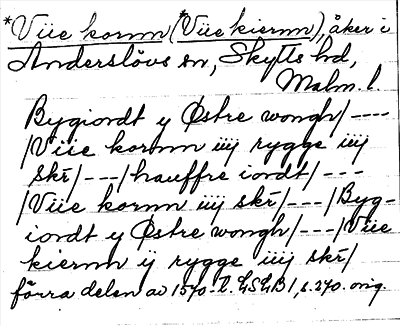 *Viie kornn (*Viie kiernn), åker i
Anderslövs sn, Skytts hd,
Malm. l.
Bygiordt y Østre wongh/----
/Viie kornn iiij rygge iiij
skr/---/hauffre iordt/---
/Viie kornn iiij skr/---/Byg-
iordt y Østre wongh/---/Viie
kiernn ij rygge iiij skr/
förra delen av 1570-t. LSLB 1, s. 270. orig.